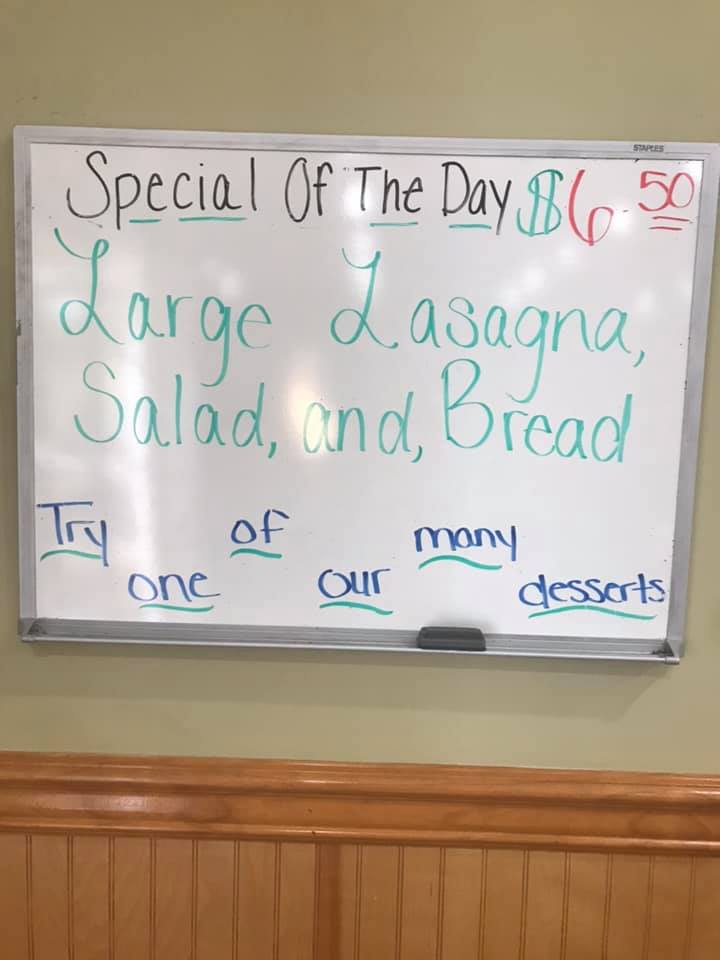 STAPLES
Special Of The Day $6.50
Large Lasagna,
Salad, and, Bread
Try one of our many desserts